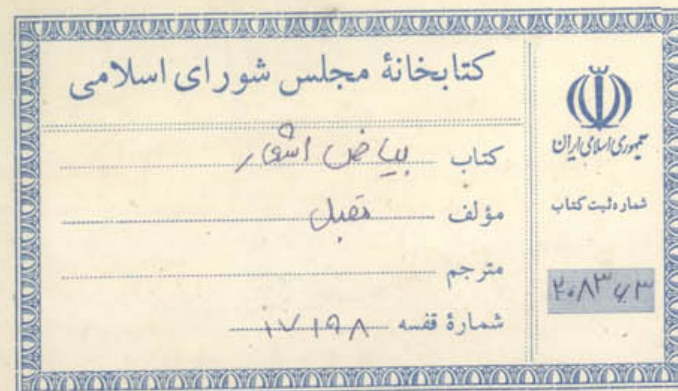 کتابخانهٔ مجلس شورای اسلامی
کتاب بیاض اشعار
مؤلف مقبل
مترجم
شمارهٔ قفسه ۱۷۱۹۸
جمهوری اسلامی ایران
شماره ثبت کتاب